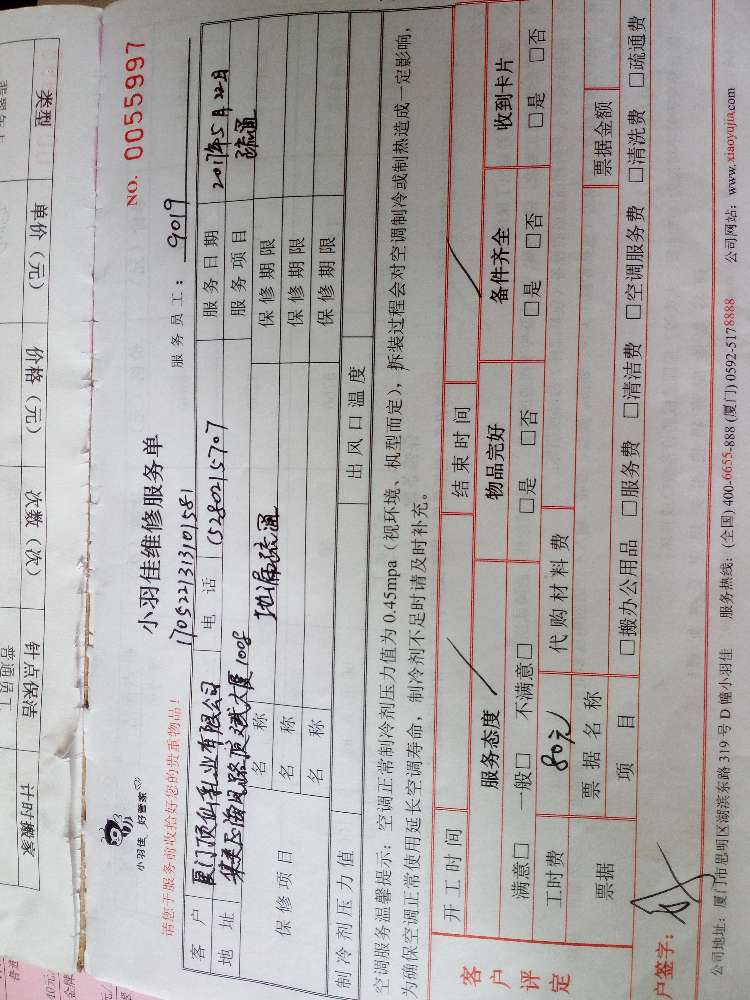 NO. 0055997
小羽佳 好管家
小羽佳维修服务单
请您于服务前收拾好您的贵重物品！
1705221313101581
服务员工：9019
客户 厦门顶仙乳业有限公司 电话 15280215707 服务日期 2017年5月22日
地址 1008 服务项目 疏通
保修项目 名称 地漏疏通 保修期限
名称 保修期限
名称 保修期限
制冷剂压力值 出风口温度
空调服务温馨提示：空调正常制冷剂压力值为 0.45mpa（视环境、机型而定），拆装过程会对空调制冷或制热造成一定影响，
为确保空调正常使用延长空调寿命，制冷剂不足时请及时补充。
客户评定
开工时间 结束时间
服务态度 物品完好 备件齐全 收到卡片
满意□ 一般□ 不满意□ □是 □否 □是 □否 □是 □否
工时费 80元 代购材料费
票据 票据名称 票据金额
项目 □搬办公用品 □服务费 □清洁费 □空调服务费 □清洗费 □疏通费
户签字：
公司地址：厦门市思明区湖滨东路 319 号 D 幢小羽佳 服务热线：(全国) 400-6655-888 (厦门) 0592-5178888 公司网站：www.xiaoyujia.com
类型 单价（元） 价格（元） 次数（次） 钟点保洁 计时搬家
普通员工
普通
金牌